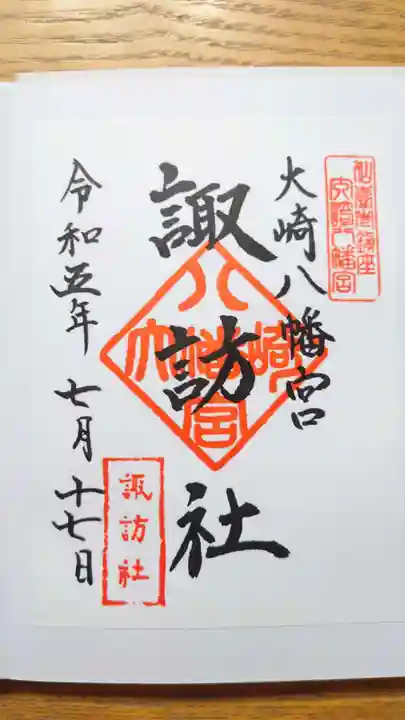 仙臺市鎮座
大崎八幡宮
大崎八幡宮
諏訪社
大崎八幡宮
諏訪社
令和五年 七月十七日